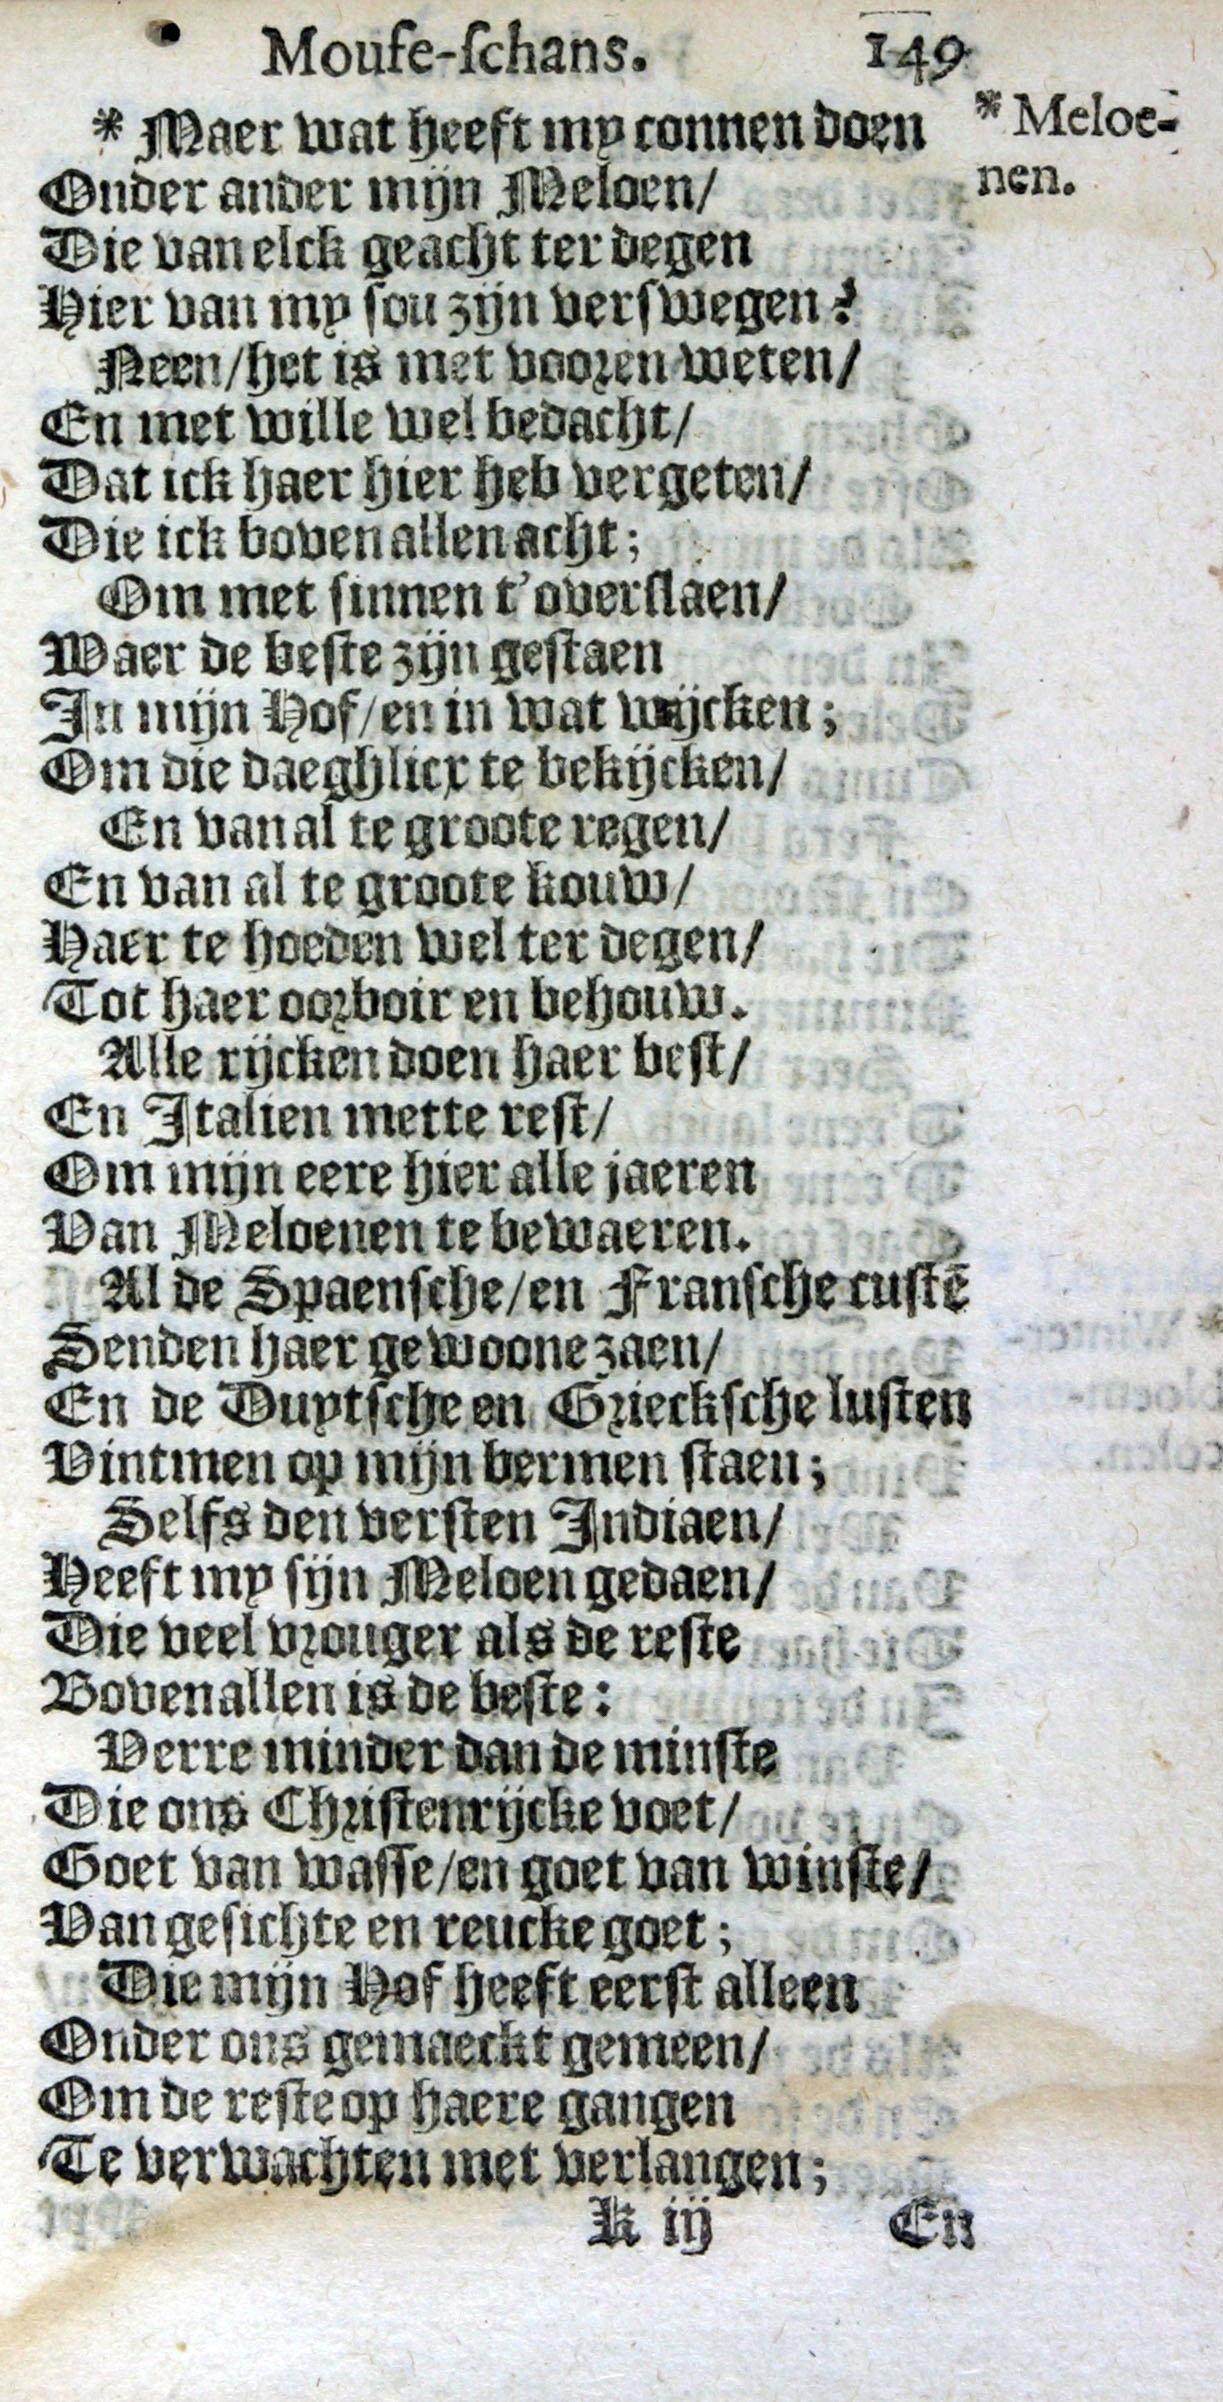 Mouſe-ſchans. 149
* Maer wat heeft my connen doen
* Meloe-
nen.
Onder ander mijn Meloen/
Die van elck geacht ter degen
Hier van my ſou zijn verſwegen?
Neen/het is met vooren weten/
En met wille wel bedacht/
Dat ick haer hier heb vergeten/
Die ick boven allen acht;
Om met ſinnen t'overſlaen/
Waer de beſte zijn geſtaen
In mijn Hof/en in wat wijcken;
Om die daeghlicx te bekijcken/
En van al te groote regen/
En van al te groote kouw/
Haer te hoeden wel ter degen/
Tot haer oorboir en behouw.
Alle rijcken doen haer beſt/
En Italien mette reſt/
Om mijn eere hier alle jaeren
Van Meloenen te bewaeren.
Al de Spaenſche/en Franſche cuſtē
Senden haer gewoone zaen/
En de Duytſche en Grieckſche luſten
Vintmen op mijn bermen ſtaen;
Selfs den verſten Indiaen/
Heeft my ſijn Meloen gedaen/
Die veel vrouger als de reſte
Boven allen is de beſte:
Verre minder dan de minſte
Die ons Chriſtenrijcke voet/
Goet van waſſe/en goet van winſte/
Van geſichte en reucke goet;
Die mijn Hof heeft eerſt alleen
Onder ons gemaeckt gemeen/
Om de reſte op haere gangen
Te verwachten met verlangen;
K iij En